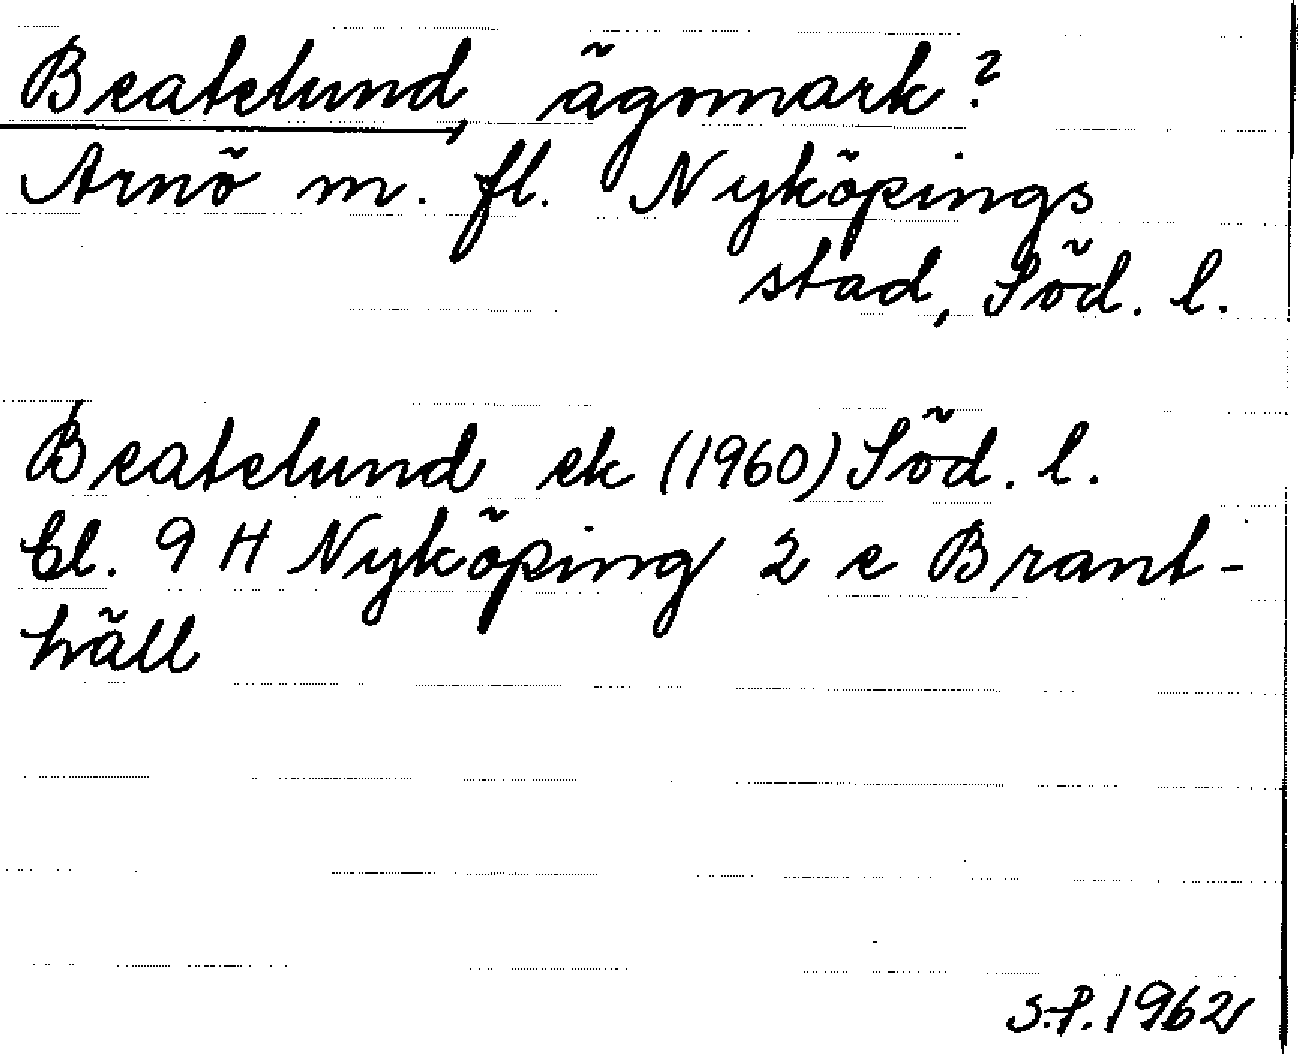 Beatelund, ägomark?
Arnö m. fl. Nyköpings
stad, Söd. l.
Beatelund ek (1960) Söd. l.
Bl. 9 H Nyköping 2 e Brant-
häll
S.P. 1962